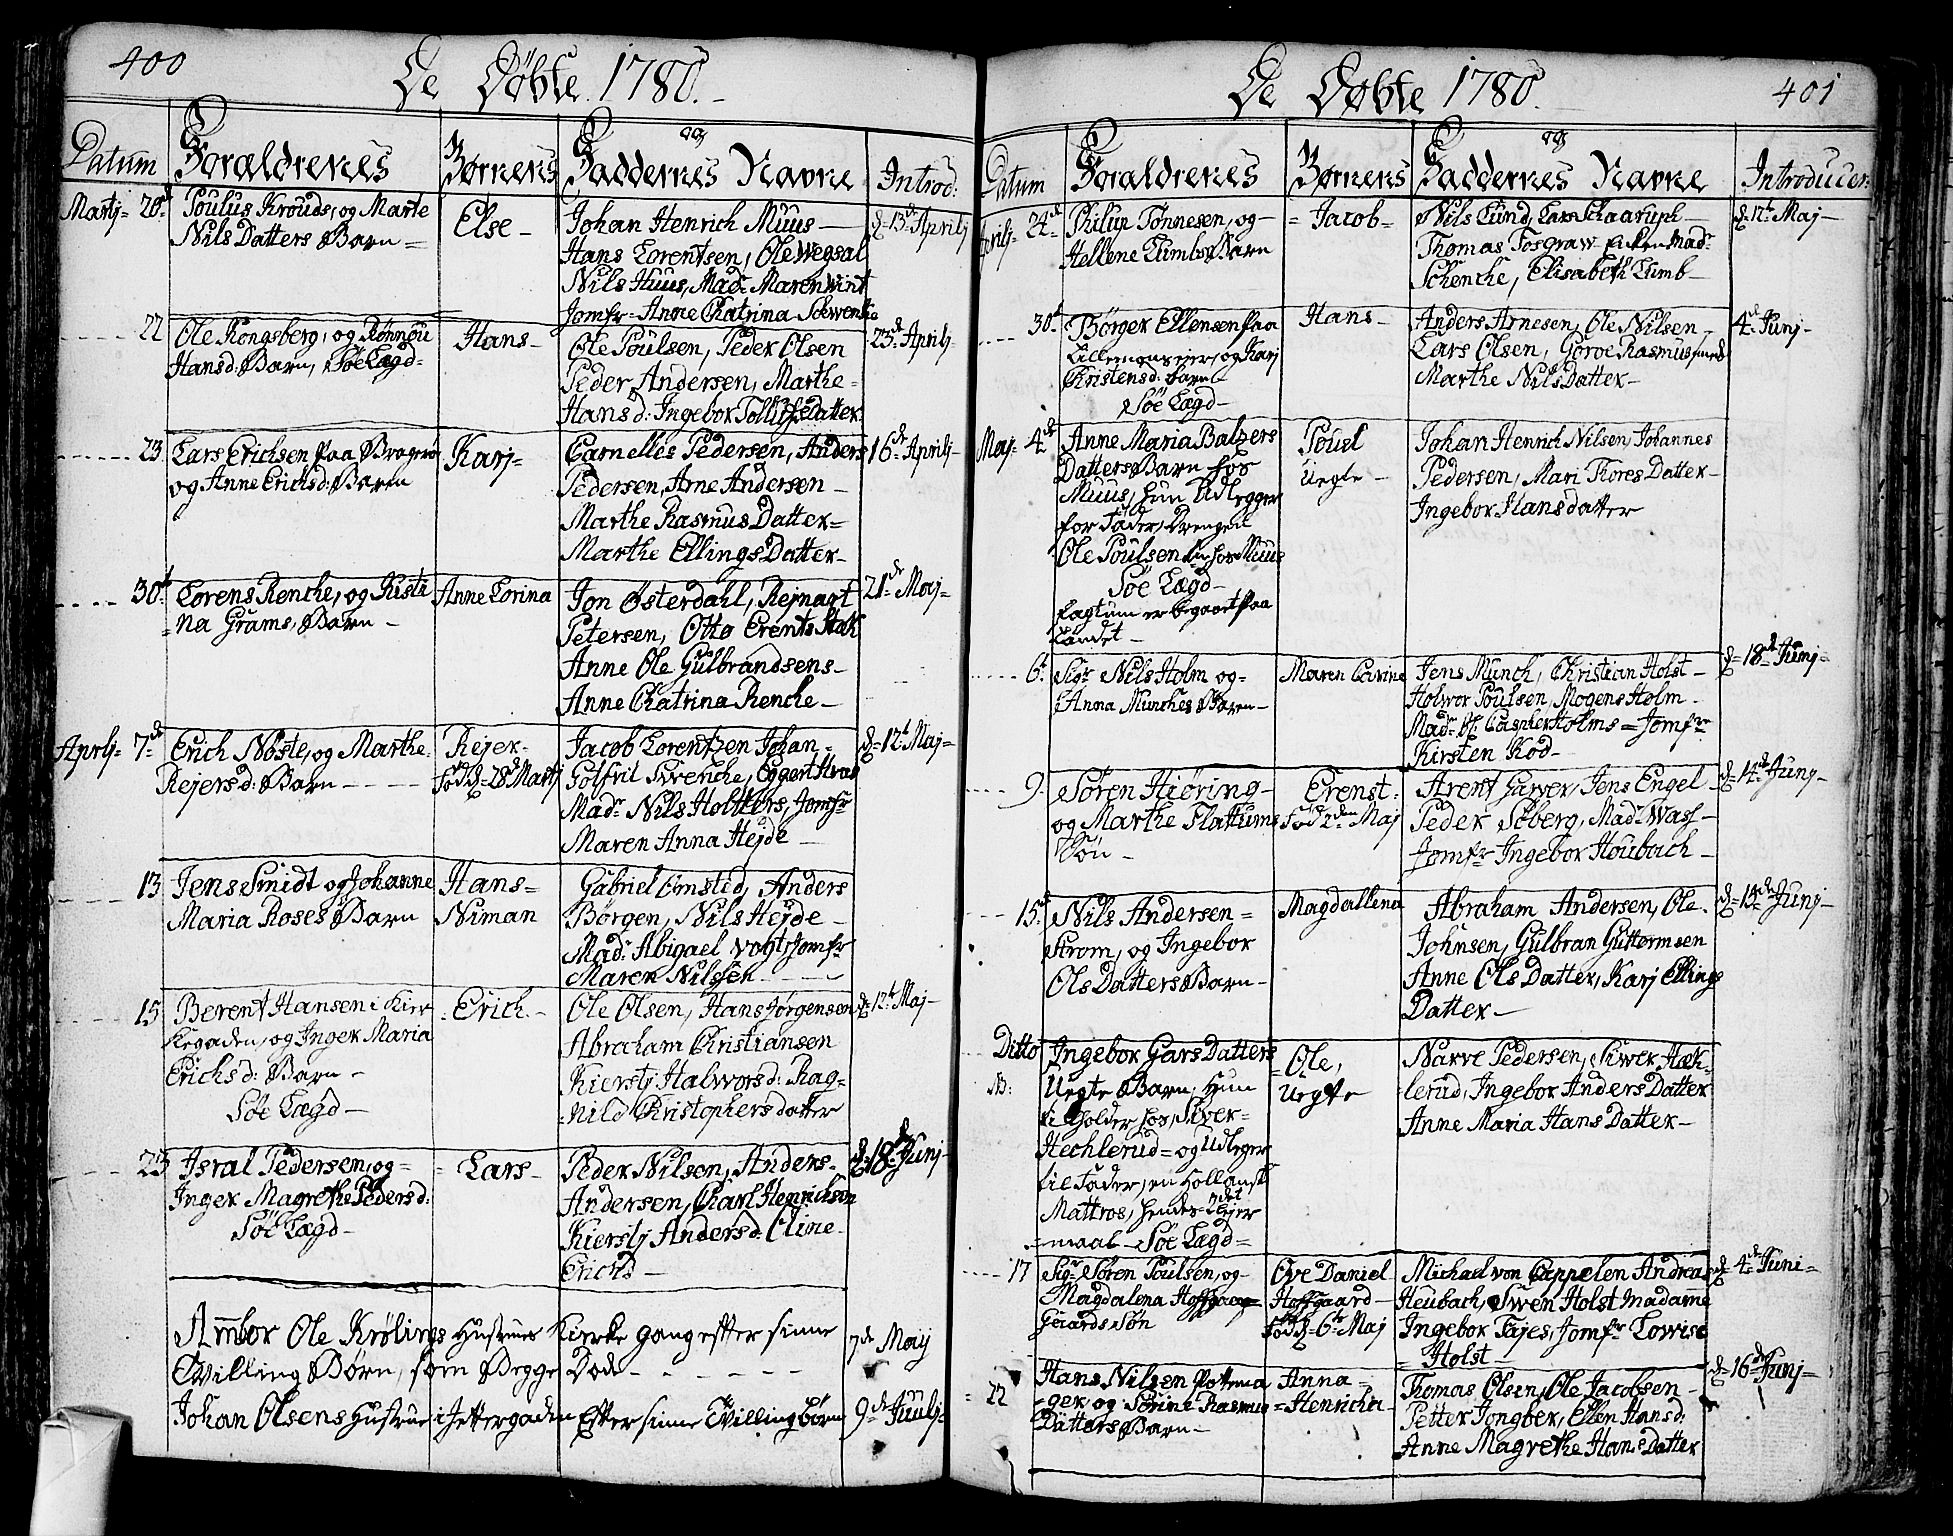 400
De Döbte 1780.
Datum
Forældrenes
Börnenes
og Faddernes Navne
Introd:
Martj= 20de
Poulus Krouds, og Marte
Nils Datters Barn=
Else-
Johan Henrich Muus-
Hans Lorentsen, Ole Wegsal
Nils Huus, Madr Maren Vint
Jomfr= Anne Chatrina Schwenke
d= 13de Aprilj
22
Ole Kongsberg, og Rønnou
Hansd: Barn, Söe Lægd-
Hans-
Ole Poulsen, Peder Olsen
Peder Andersen, Marthe=
Hansd: Ingebor Tollefsdatter
23de Aprilj-
23
Lars Erichsen paa Bragerø
og Anne Erichsd: Barn
Karj-
Carnelles Pedersen, Anders
Pedersen, Arne Andersen-
Marthe Rasmus Datter=
Marthe Ellings Datter-
16de Aprilj-
30t
Lorens Renche, og Kisti
=na Grams, Barn-
Anne Lorina
Jon Østerdahl, Rejnart
Petersen, Otto Erents Stak
Anne Ole Gulbrandsens-
Anne Chatrina Renche-
21de Maj-
Aprlj= 7de
Erich Nøste, og Marthe
Rejersd: Barn- - - -
Rejer-
född= 28de Martj
Jacob Lorentzen Johan=
Golfril Swenche, Eggert Stras
Madr Nils Holtters, Jomfr
Maren Anna Hejde-
d= 12t Maj=
13
Jens Smidt og Johanne
Maria Roses Barn
Hans=
Niman
Gabriel Omsted, Anders
Börgen, Nils Hejde-
Madr Abigael Vogt, Jomfr
Maren Nilssen- - -
15
Berent Hansen i Kier
kegaden, og Inger Maria
Erichsd: Barn-
Söe Lægd-
Erich.-
Ole Olsen, Hans Jørgensen
Abraham Christiansen
Kierstj Halworsd: Rag=
=nild Christophersdatter
d= 12t Maj-
23
Isral Pedersen, og-
Inger Magrethe Pedersd:
Söe Lægd-
Lars-
Peder Nilsen, Anders-
Andersen, Charl Henrichsen
Kierstj Andersd: Eline
Erichsd-
d= 18de Junj-
Ambor Ole Krølings Hustrues Kierke gang efter sinne
Tvilling Børn, som Begge Døde- - - - -
7de Maij
Johan Olsens Hustrue i Jettergaden Efter sinne Tvilling børn
9de Juulj-
401
De Döbte 1780.
Datum
Forældrenes
Börnenes
og Faddernes Navne
Introducer:
Aprilj= 24de
Philup Tønnesen, og-
Hellene Lumbs Barn
=Jacob=
Nils Lund, Lars Schaaruph-
Thomas Fosgraw Madr
Schenche, Elisabeth Lumb-
d= 12t Maj-
30t
Börger Ellensen paa
Lillemonseier, og Karj
Kristensd: barn
Söe Lægd-
Hans-
Anders Arnesen, Ole Nilsen-
Lars Olsen, Gorve Rasmus smed
Marthe Nils Datter-
4de Junj-
Maj= 4de
Anne Maria Balzers
Datters Barn hos
Muus, hun Udlegger
for fader, Drengen
Ole Poulsen hos Muus
Söe Lægd-
factum er begaaet paa
Landet-
Pouel
Uegte-
Johan Henrich Nilsen, Johannes
Pedersen, Mari Thores Datter-
Ingebor Hansdatter
6t
Sigr Nils Holm og=
Anna Munches Barn-
Maren Carine
Jens Munch, Christian Holst-
Holwor Poulsen, Mogens Holm
Madr Casper Holms= Jomfr
Kirsten Kod-
d= 18de Junj=
9
Søren Hiøring-
og Marthe Flattums
Sön-
Erenst
född 2den Maj
Arent Garver, Jens Engel
Peder Søberg, Madr Wasf-
Jomfr Ingebor Houbach-
d= 14de Junj-
15de
Nils Andersen=
Strom, og Ingebor
Ols Datters Barn-
Magdallena
Abraham Andersen, Ole
Johnsen, Gulbran Guttormsen
Anne Ols Datter, Karj Ellings
Datter-
d= 15de Junj-
Ditto
N:
Ingebor Gars Datters
Uegte Barn, Hun
til holder hos Siver=
Hechlerud= og Udleger
til fader, en Hollansk
Mattros, hendes 2det Lejer
=maal- Söe Lægd=
Ole,
Uegte
Narve Pedersen, Siwer Hæk-
lerud, Ingebor Anders Datter
Anne Maria Hans Datter-
17
Sigr Søren Poulsen, og-
Magdalena Hoffgaag=
Gaards Søn
Ove Daniel
Hoffgaard-
född= 6t Maj
Michael von Cappelen Andreas
Heubach, Swen Holst Madamme
Ingebor Fajes, Jomfr Lowise
=Holst-
d= 4de Juni-
22
Hans Nilsen Pottema
=ger og Sørine Rasmus
Datters Barn-
Anna=
=Henricha-
Thomas Olsen, Ole Jacobsen-
Petter Jongber, Ellen Hansd:
Anne Magrethe Hans Datter
d= 16de Junj-